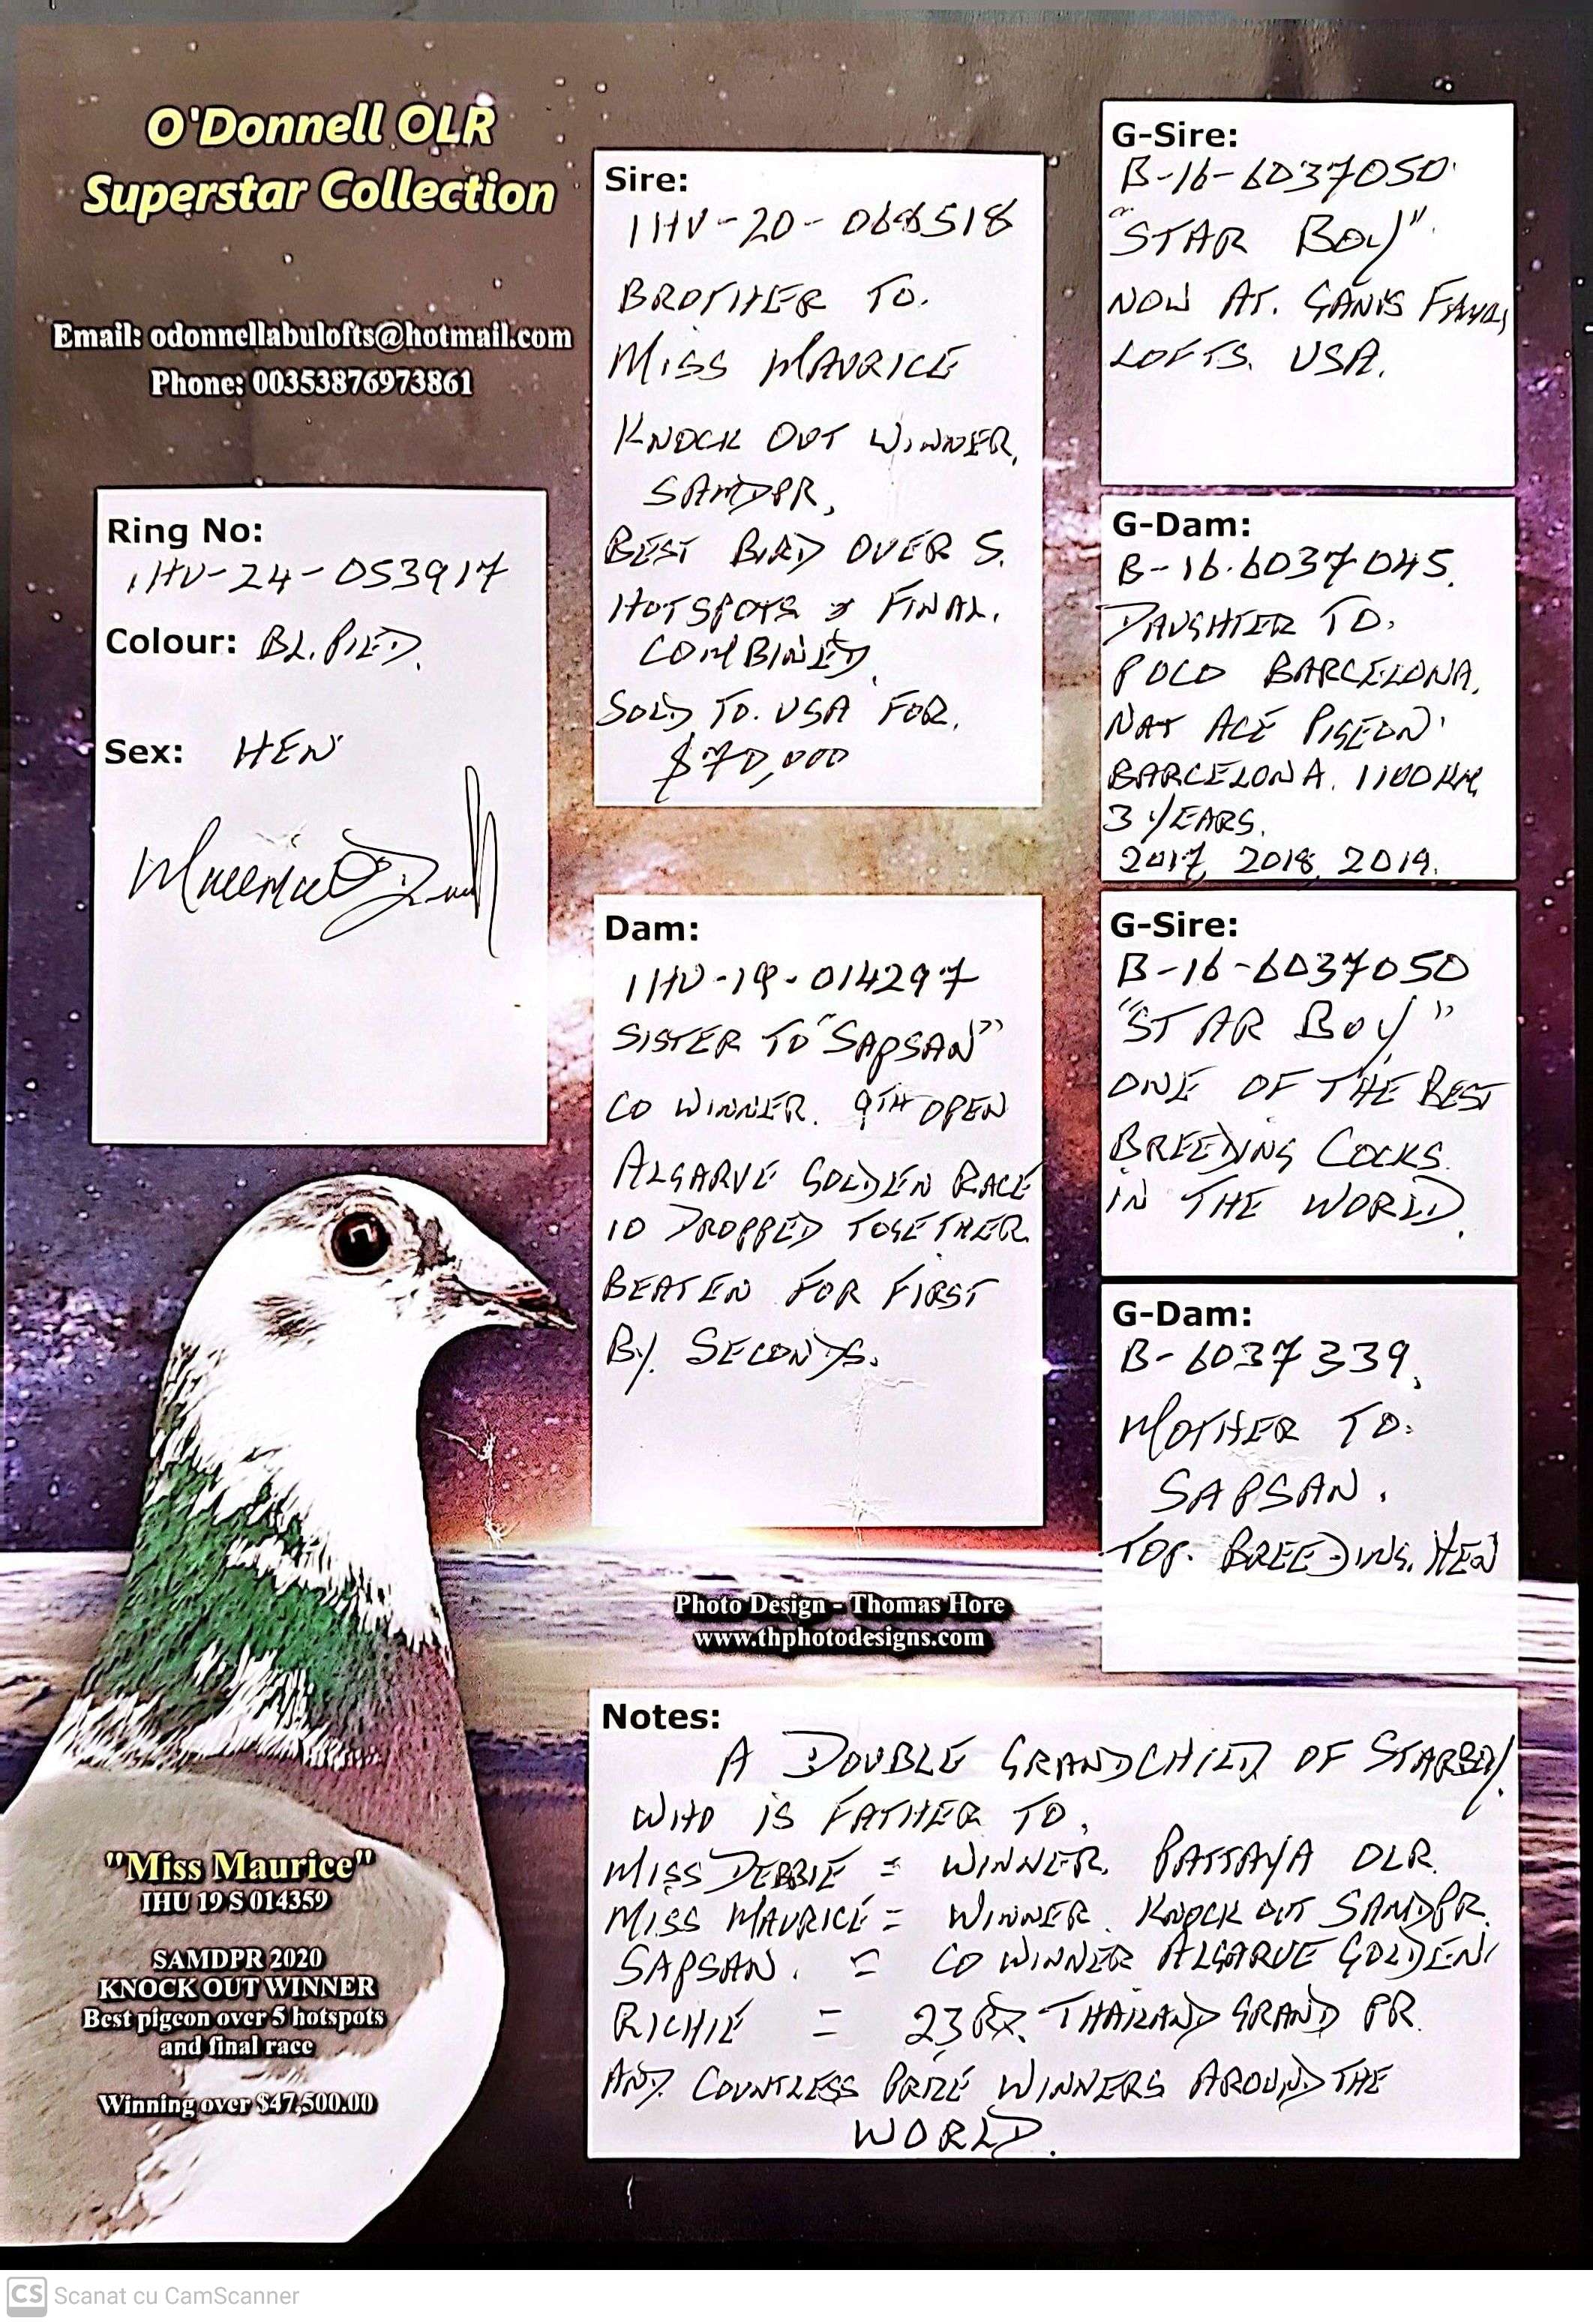 O'Donnell OLR
Superstar Collection
Email: odonnellabulofts@hotmail.com
Phone: 00353876973861
Ring No:
IHU-24-053917
Colour: BL. PIED.
Sex: HEN
Sire:
IHU-20-068518
BROTHER TO.
MISS MAURICE
KNOCK OUT WINNER.
SAMDPR.
BEST BIRD OVER 5.
HOTSPOTS & FINAL.
COMBINED.
SOLD TO. USA FOR.
$70,000
Dam:
IHU-19-014297
SISTER TO "SAPSAN"
CO WINNER. 9TH OPEN
ALGARVE GOLDEN RACE
10 DROPPED TOGETHER.
BEATEN FOR FIRST
BY. SECONDS.
G-Sire:
B-16-6037050.
"STAR BOY".
NOW AT.
LOFTS. USA.
G-Dam:
B-16.6037045.
DAUGHTER TO.
POCO BARCELONA.
NAT ACE PIGEON.
BARCELONA. 1100KM.
3 YEARS.
2017, 2018, 2019.
G-Sire:
B-16-6037050
"STAR BOY"
ONE OF THE BEST
BREEDING COCKS.
IN THE WORLD.
G-Dam:
B-6037339.
MOTHER TO.
SAPSAN.
TOP. BREEDING. HEN
Photo Design - Thomas Hore
www.thphotodesigns.com
Notes:
A DOUBLE GRANDCHILD OF STARBOY.
WHO IS FATHER TO.
MISS DEBBIE = WINNER. PATTAYA OLR.
MISS MAURICE = WINNER. KNOCK OUT SAMDPR.
SAPSAN. = CO WINNER ALGARVE GOLDEN.
RICHIE = 23RD. THAILAND GRAND PR.
AND. COUNTLESS PRIZE WINNERS AROUND THE
WORLD.
"Miss Maurice"
IHU 19 S 014359
SAMDPR 2020
KNOCK OUT WINNER
Best pigeon over 5 hotspots
and final race
Winning over $47,500.00
CS Scanat cu CamScanner